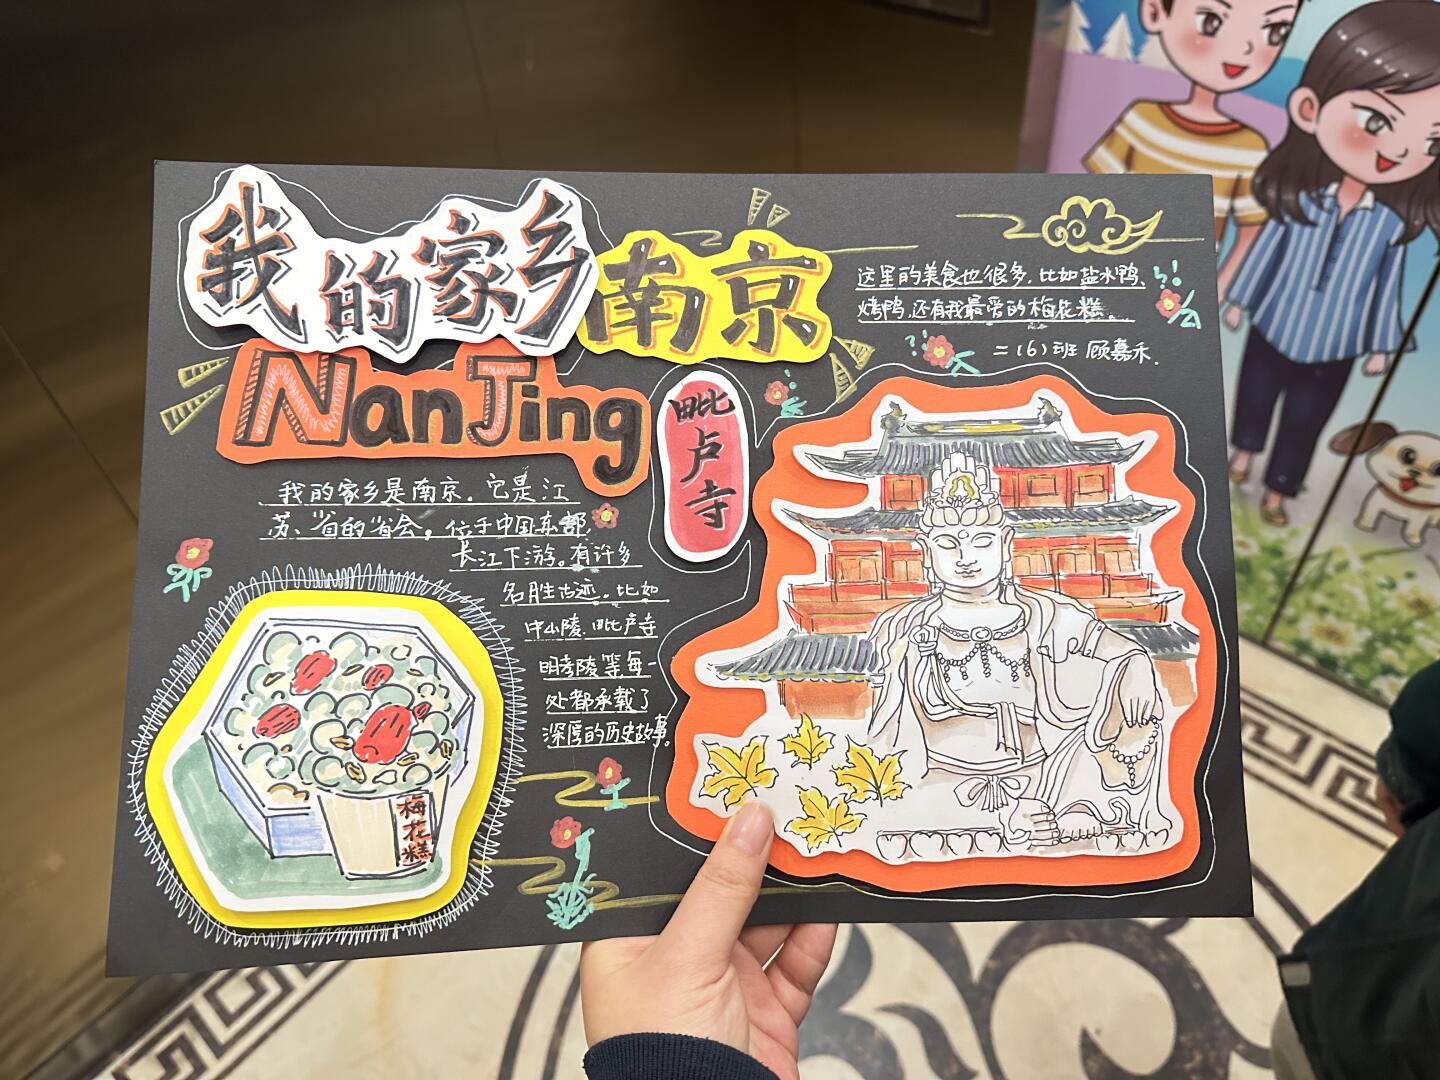 我的家乡南京
NanJing
这里的美食也很多,比如盐水鸭、
烤鸭,还有我最爱的梅花糕。
二(6)班 顾嘉禾.
毗卢寺
我的家乡是南京。它是江
苏、省的省会。位于中国东部,
长江下游。有许多
名胜古迹,比如
中山陵、毗卢寺
明孝陵等每一
处都承载了
深厚的历史故事。
梅花糕